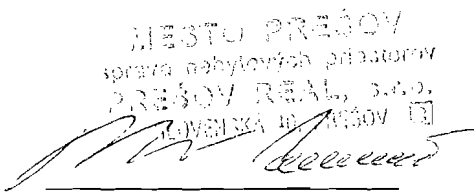 MESTO PREŠOV
správa nebytových priestorov
PREŠOV REAL, s.r.o.
SLOVENSKÁ 40, PREŠOV